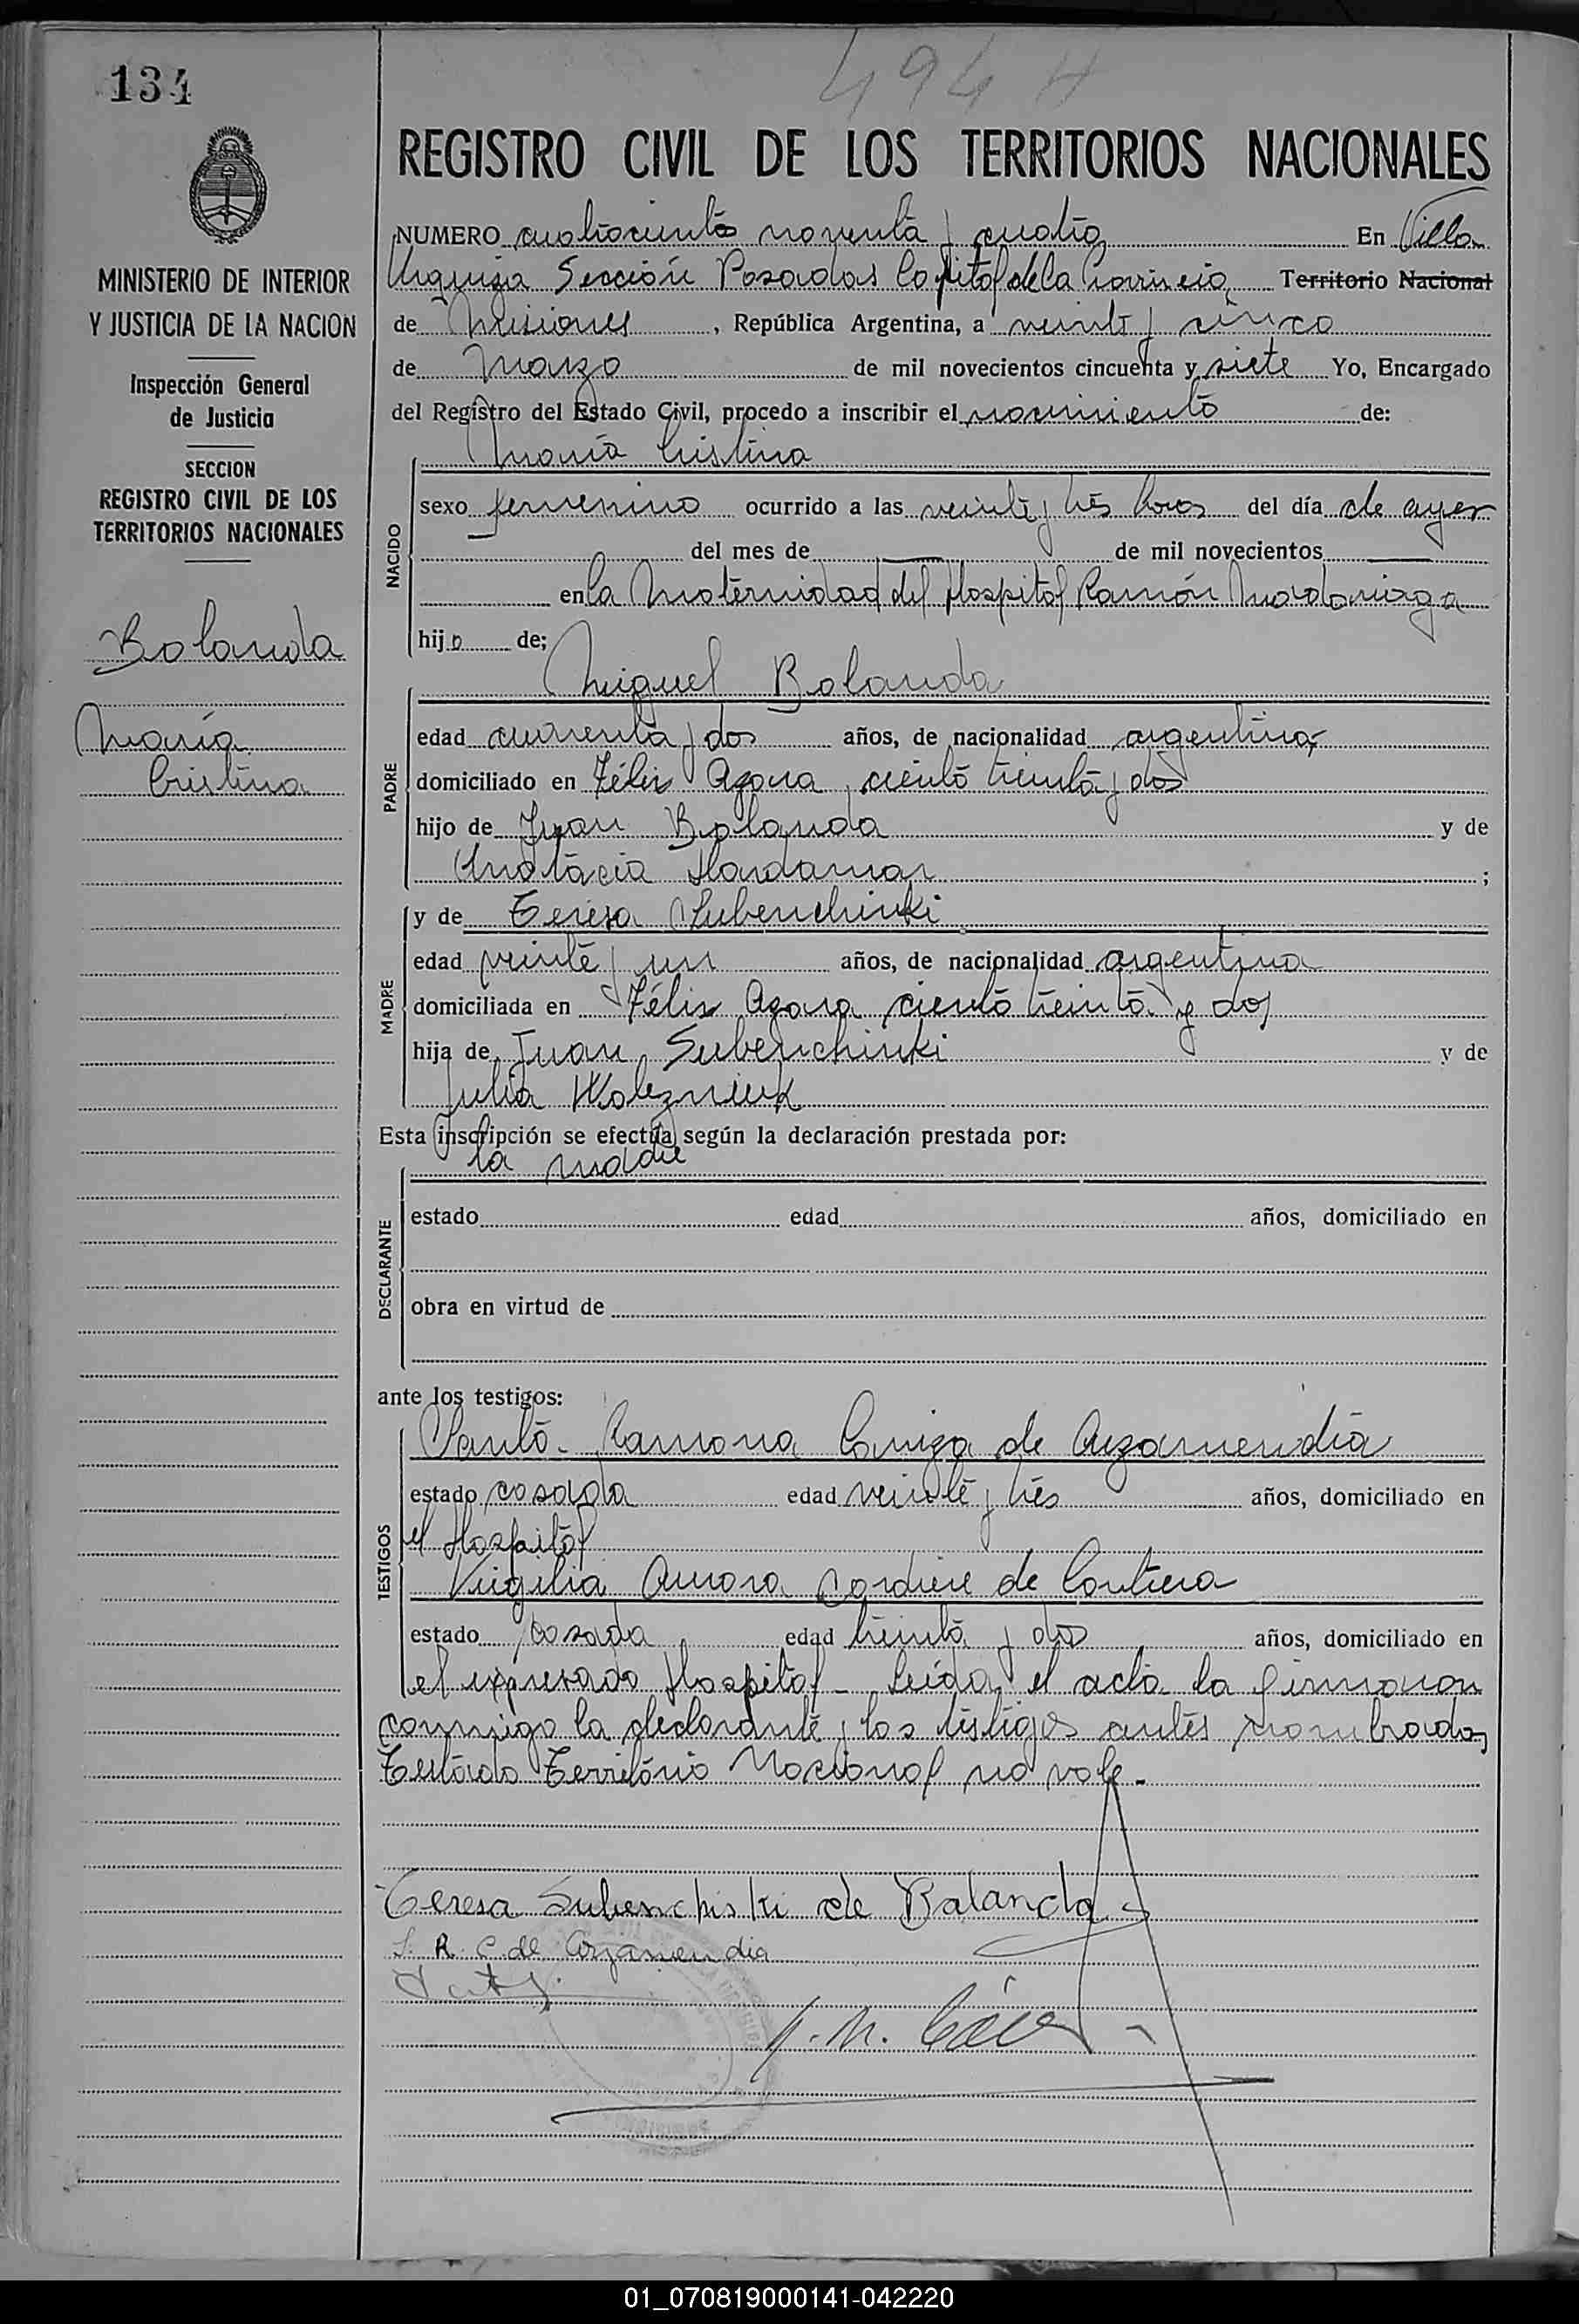 134
494 H
REGISTRO CIVIL DE LOS TERRITORIOS NACIONALES
MINISTERIO DE INTERIOR
Y JUSTICIA DE LA NACION
Inspección General
de Justicia
SECCION
REGISTRO CIVIL DE LOS
TERRITORIOS NACIONALES
Bolanda
María
Cristina
NUMERO cuatrocientos noventa y cuatro En Villa
Urquiza Sección Posadas Capital de la Provincia Territorio Nacional
de Misiones, República Argentina, a veinte y cinco
de Marzo de mil novecientos cincuenta y siete Yo, Encargado
del Registro del Estado Civil, procedo a inscribir el nacimiento de:
María Cristina
NACIDO
sexo femenino ocurrido a las veinte y tres horas del día de ayer
del mes de de mil novecientos
en la Maternidad del Hospital Ramón Madariaga
hija de;
Miguel Bolanda
PADRE
edad cuarenta y dos años, de nacionalidad argentina,
domiciliado en Félix Azara ciento treinta y dos
hijo de Juan Bolanda y de
Anastacia ;
y de Teresa Subenchinki
MADRE
edad veinte y un años, de nacionalidad argentina
domiciliada en Félix Azara ciento treinta y dos
hija de Juan Subenchinki y de
Julia Wolezniuk
Esta inscripción se efectúa según la declaración prestada por:
la madre
DECLARANTE
estado edad años, domiciliado en
obra en virtud de
ante los testigos:
Santo Ramona de Arzamendia
TESTIGOS
estado casada edad veinte y tres años, domiciliado en
el Hospital
Virgilia Aurora de
estado casada edad treinta y dos años, domiciliado en
el expresado Hospital - Leída el acta la firmaron
conmigo la declarante y los testigos antes nombrados
Testado Territorio Nacional no vale.
Teresa Subenchiski de Balanda
S. R. C. de Arzamendia
01_070819000141-042220